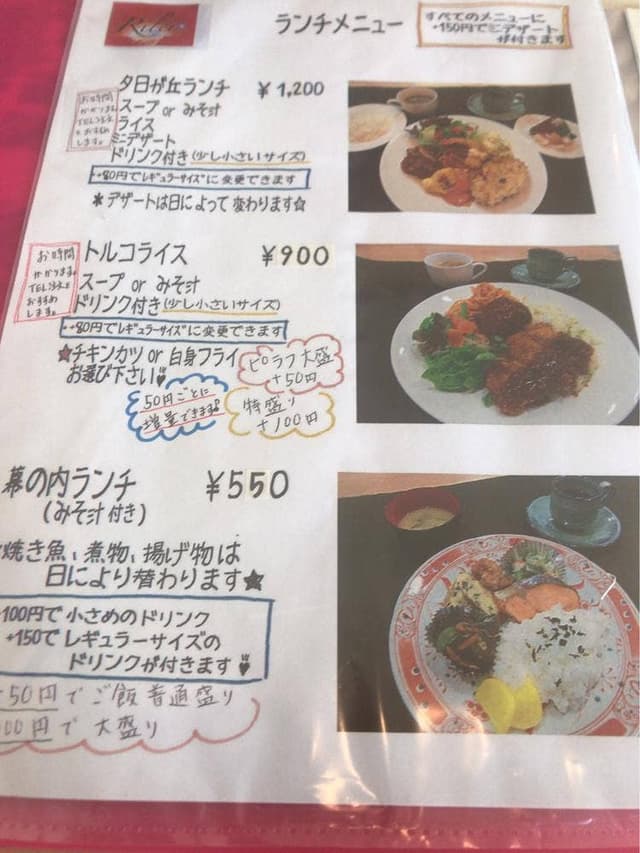 ランチメニュー
すべてのメニューに
+150円でミニデザート
が付きます
夕日が丘ランチ ¥1,200
お時間
かかります。
TEL注文
おすすめ
します。
スープ or みそ汁
ライス
ミニデザート
ドリンク付き(少し小さいサイズ)
+80円でレギュラーサイズに変更できます
*デザートは日によって変わります☆
お時間
かかります。
TEL注文を
おすすめ
します。
トルコライス ¥900
スープ or みそ汁
ドリンク付き(少し小さいサイズ)
+80円でレギュラーサイズに変更できます
★チキンカツ or 白身フライ
お選び下さい♥
ピラフ大盛
+50円
50円ごとに
増量できます。
特盛り
+100円
幕の内ランチ ¥550
(みそ汁付き)
焼き魚、煮物、揚げ物は
日により替わります★
100円で小さめのドリンク
+150でレギュラーサイズの
ドリンクが付きます♥
50円でご飯普通盛り
00円で大盛り